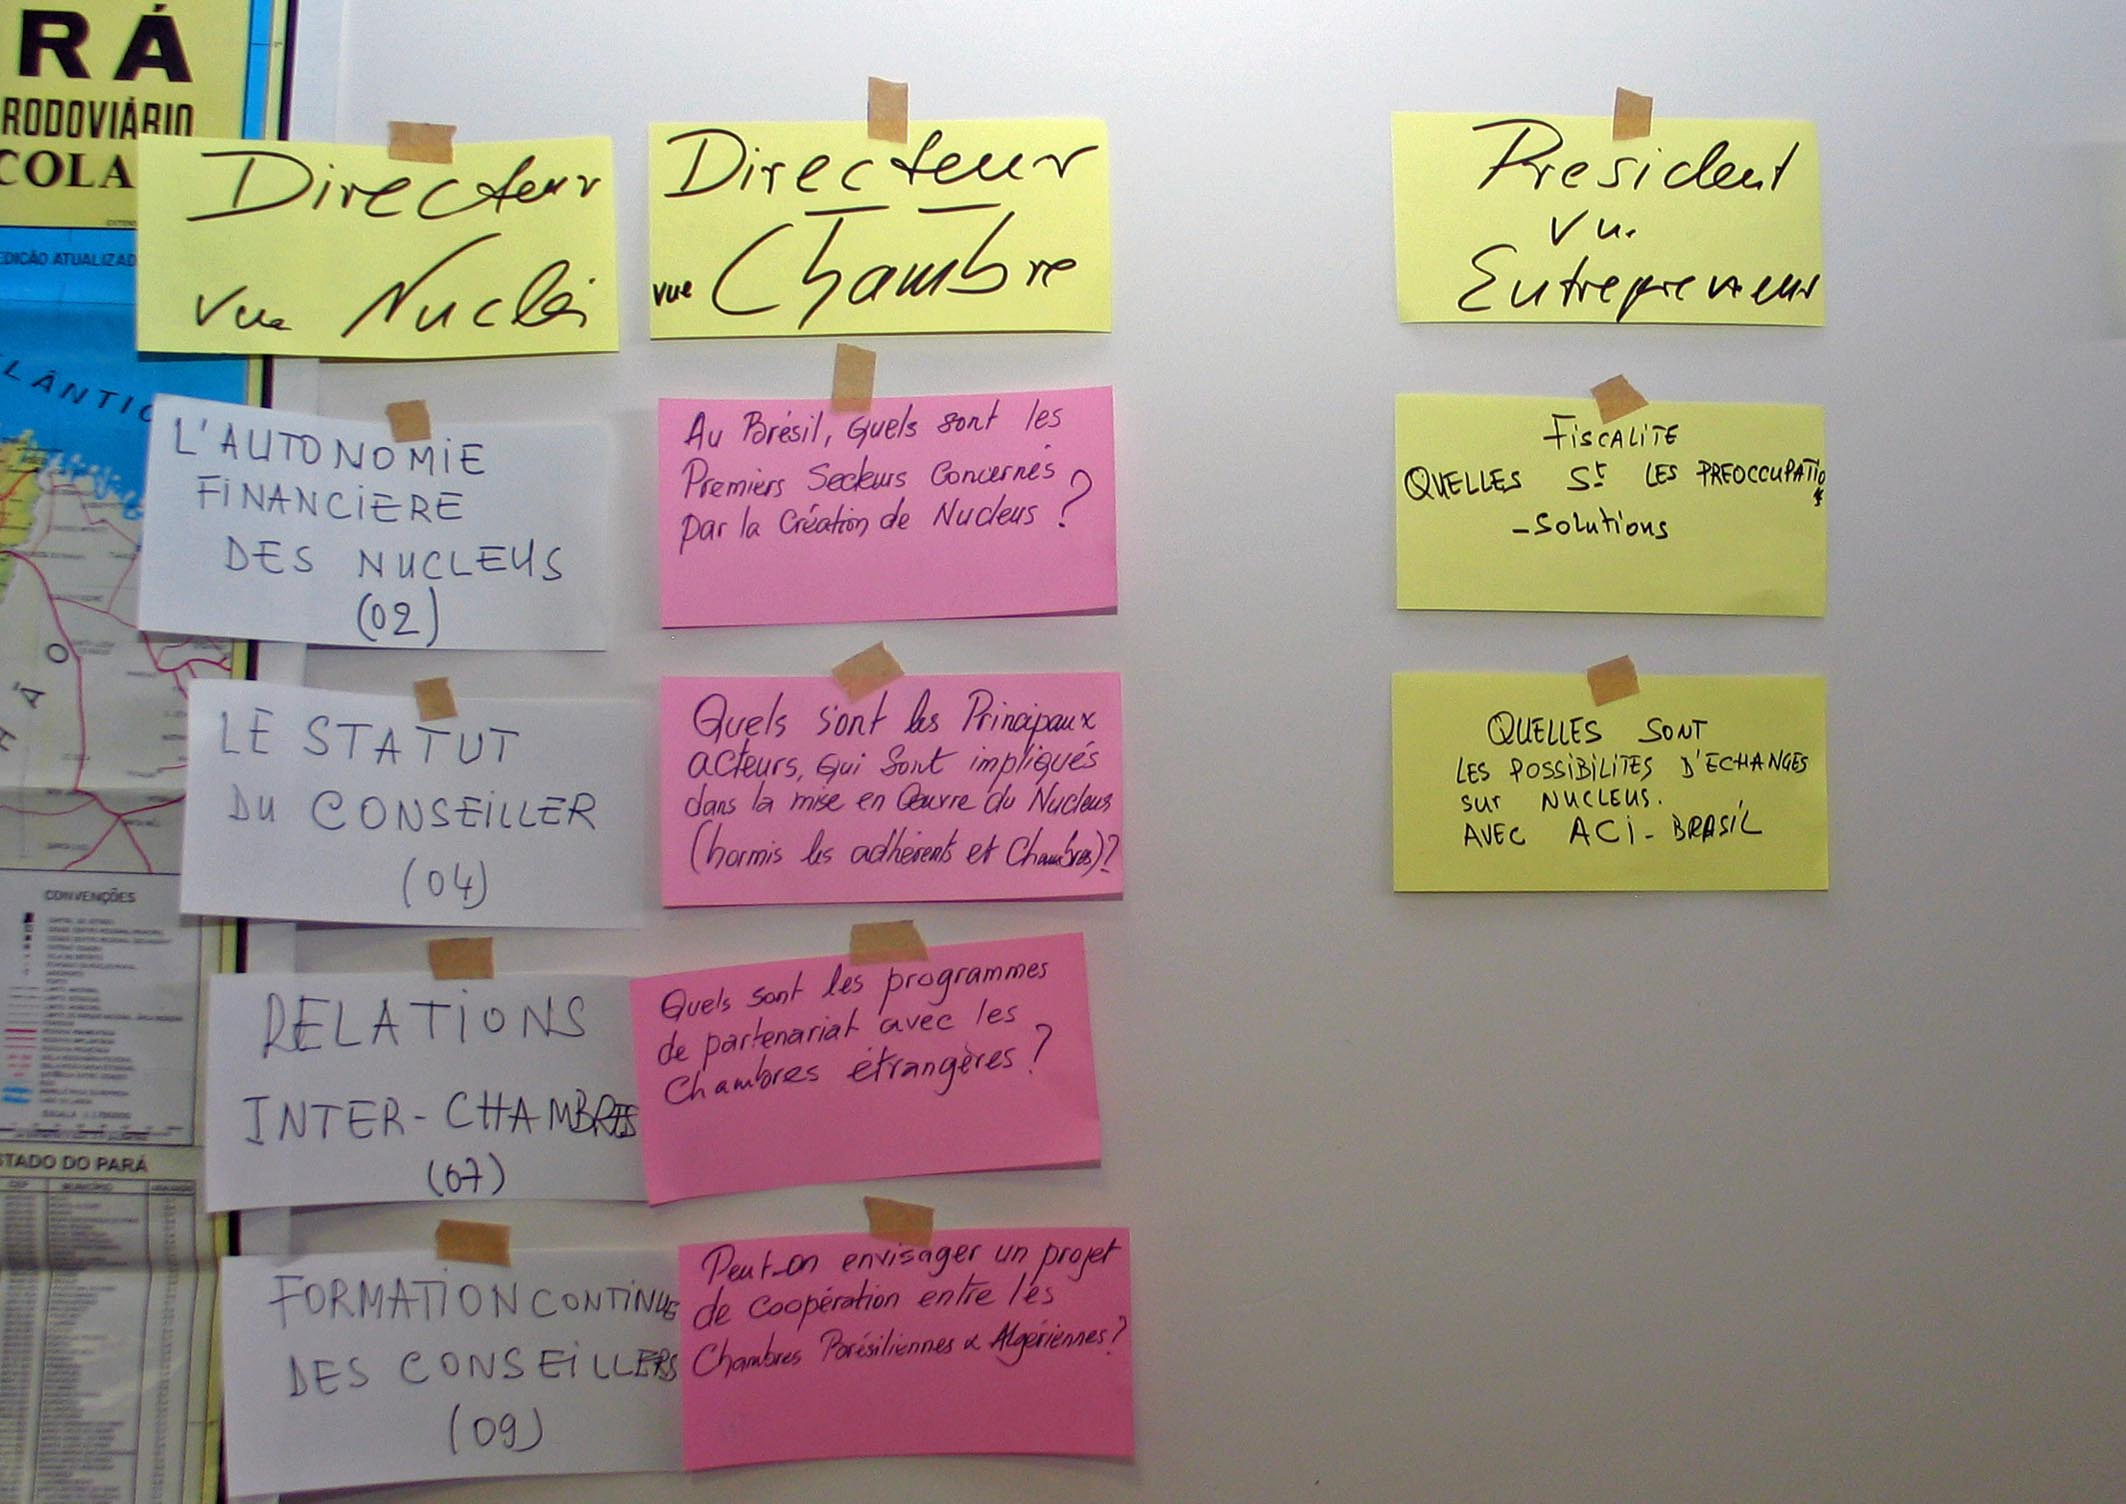 RÁ
RODOVIÁRIO
COLA
EDIÇÃO ATUALIZAD
LÂNTIC
CONVENÇÕES
STADO DO PARÁ
Directeur
vue Nuclei
L'AUTONOMIE
FINANCIERE
DES NUCLEUS
(02)
LE STATUT
DU CONSEILLER
(04)
RELATIONS
INTER-CHAMBRES
(07)
FORMATION CONTINUE
DES CONSEILLERS
(09)
Directeur
vue Chambre
Au Brésil, quels sont les
Premiers Secteurs Concernés
par la Création de Nucleus ?
Quels sont les Principaux
acteurs, qui sont impliqués
dans la mise en Œuvre du Nucleus
(hormis les adhérents et Chambres)?
Quels sont les programmes
de partenariat avec les
Chambres étrangères ?
Peut-on envisager un projet
de coopération entre les
Chambres Brésiliennes & Algériennes ?
President
vu.
Entrepreneur
FISCALITE
QUELLES St LES PREOCCUPATIOS
- Solutions
QUELLES SONT
LES POSSIBILITES D'ECHANGES
SUR NUCLEUS.
AVEC ACI - BRASIL